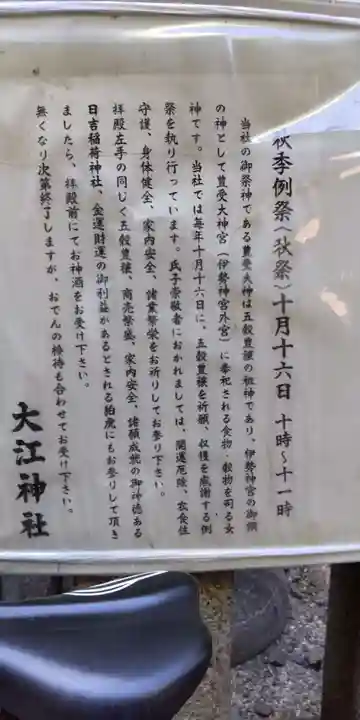 秋季例祭(秋祭)十月十六日 十時~十一時
当社の御祭神である豊受大神は五穀豊穣の祖神であり、伊勢神宮の御饌
の神として豊受大神宮(伊勢神宮外宮)に奉祀される食物・穀物を司る女
神です。当社では毎年十月十六日に、五穀豊穣を祈願、収穫を感謝する例
祭を執り行っています。氏子崇敬者におかれましては、開運厄除、衣食住
守護、身体健全、家内安全、諸業繁栄をお祈りしてお参り下さい。
拝殿左手の同じく五穀豊穣、商売繁盛、家内安全、諸願成就の御神徳ある
日吉稲荷神社、金運財運の御利益があるとされる狛虎にもお参りして頂き
ましたら、拝殿前にてお神酒をお受け下さい。
無くなり次第終了しますが、おでんの接待も合わせてお受け下さい。
大江神社